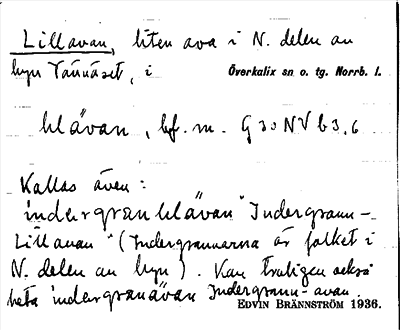 Lillavan, liten ava i N. delen av
byn Tännäset, i Överkalix sn o. tg. Norrb. l.
, bf. m. G30NVb3,6
Kallas även:
Indergrann-
Lillavan" (Indergrannarna är folket i
N. delen av byn). Kan troligen också
heta Indergrann-avan.
EDVIN BRÄNNSTRÖM 1936.